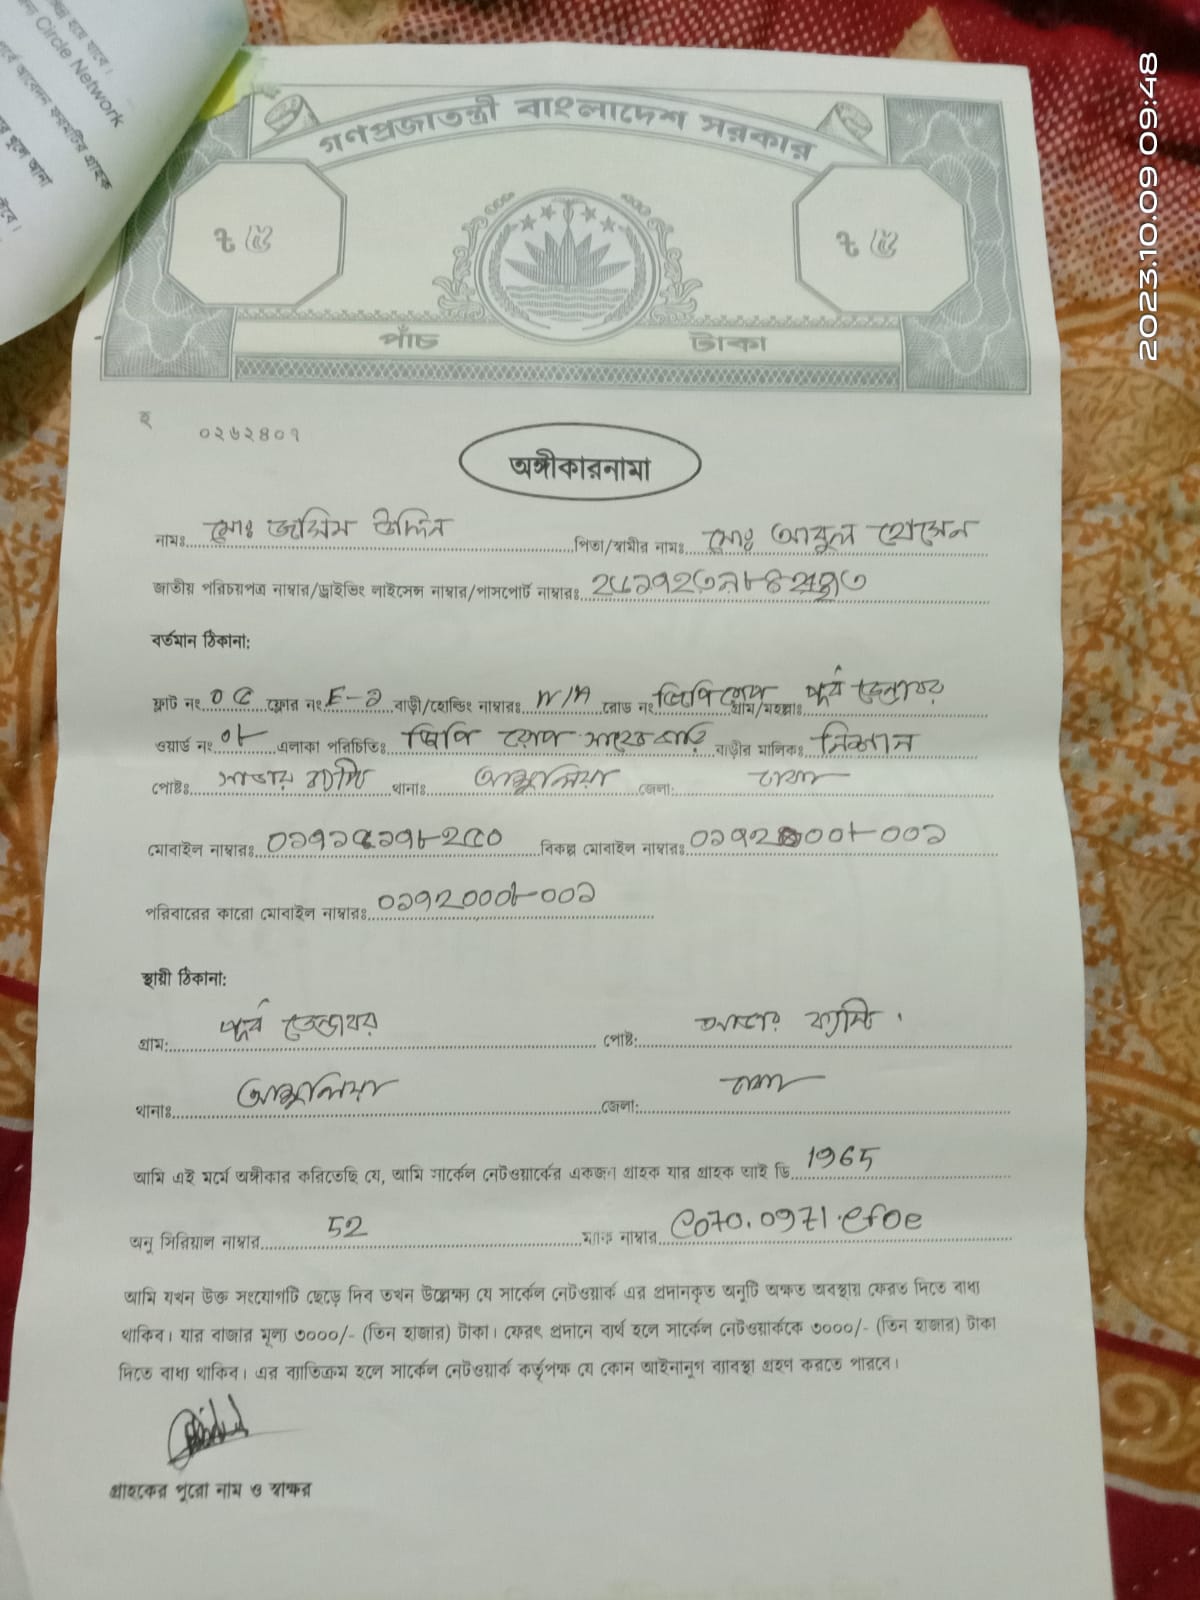 Circle Network
গণপ্রজাতন্ত্রী বাংলাদেশ সরকার
৳ ৫ ৳ ৫
পাঁচ টাকা
হ
০২৬২৪০৭
অঙ্গীকারনামা
নামঃ মোঃ জসিম উদ্দিন পিতা/স্বামীর নামঃ মোঃ আবুল হোসেন
জাতীয় পরিচয়পত্র নাম্বার/ড্রাইভিং লাইসেন্স নাম্বার/পাসপোর্ট নাম্বারঃ
বর্তমান ঠিকানা:
ফ্লাট নং ০৫ ফ্লোর নং E-১ বাড়ী/হোল্ডিং নাম্বারঃ N/A রোড নং গ্রাম/মহল্লাঃ পূর্ব ডেন্ডাবর
ওয়ার্ড নং ০৮ এলাকা পরিচিতিঃ বাড়ীর মালিকঃ
পোষ্টঃ সাভার ক্যান্ট থানাঃ আশুলিয়া জেলা: ঢাকা
মোবাইল নাম্বারঃ ০১৭১৫১৭৮২৫০ বিকল্প মোবাইল নাম্বারঃ
পরিবারের কারো মোবাইল নাম্বারঃ ০১৭২০০০৮০০১
স্থায়ী ঠিকানা:
গ্রাম: পূর্ব ডেন্ডাবর পোষ্ট: সাভার ক্যান্ট
থানাঃ আশুলিয়া জেলা: ঢাকা
আমি এই মর্মে অঙ্গীকার করিতেছি যে, আমি সার্কেল নেটওয়ার্কের একজন গ্রাহক যার গ্রাহক আই ডি 1965
অনু সিরিয়াল নাম্বার 52 ম্যাক নাম্বার C070.0971.efoe
আমি যখন উক্ত সংযোগটি ছেড়ে দিব তখন উল্লেক্ষ্য যে সার্কেল নেটওয়ার্ক এর প্রদানকৃত অনুটি অক্ষত অবস্থায় ফেরত দিতে বাধ্য
থাকিব। যার বাজার মূল্য ৩০০০/- (তিন হাজার) টাকা। ফেরৎ প্রদানে ব্যর্থ হলে সার্কেল নেটওয়ার্ককে ৩০০০/- (তিন হাজার) টাকা
দিতে বাধ্য থাকিব। এর ব্যাতিক্রম হলে সার্কেল নেটওয়ার্ক কর্তৃপক্ষ যে কোন আইনানুগ ব্যাবস্থা গ্রহণ করতে পারবে।
গ্রাহকের পুরো নাম ও স্বাক্ষর
2023.10.09 09:48